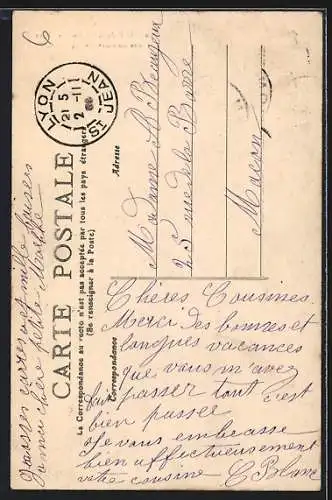 CARTE POSTALE
La Correspondance au recto n'est pas acceptée par tous les pays étrangers
(Se renseigner à la Poste)
Correspondance
Adresse
LYON
ST JEAN
21 5
2 -11
Madame A Beaujean
25 rue de la Barre
Macon
Chères Cousines
Merci des bonnes et
longues vacances
que vous m'avez
fait passer tout c'est
bien passée
Je vous embrasse
bien affectueusement
votre cousine C Blanc
cartes et mille baisers
petite